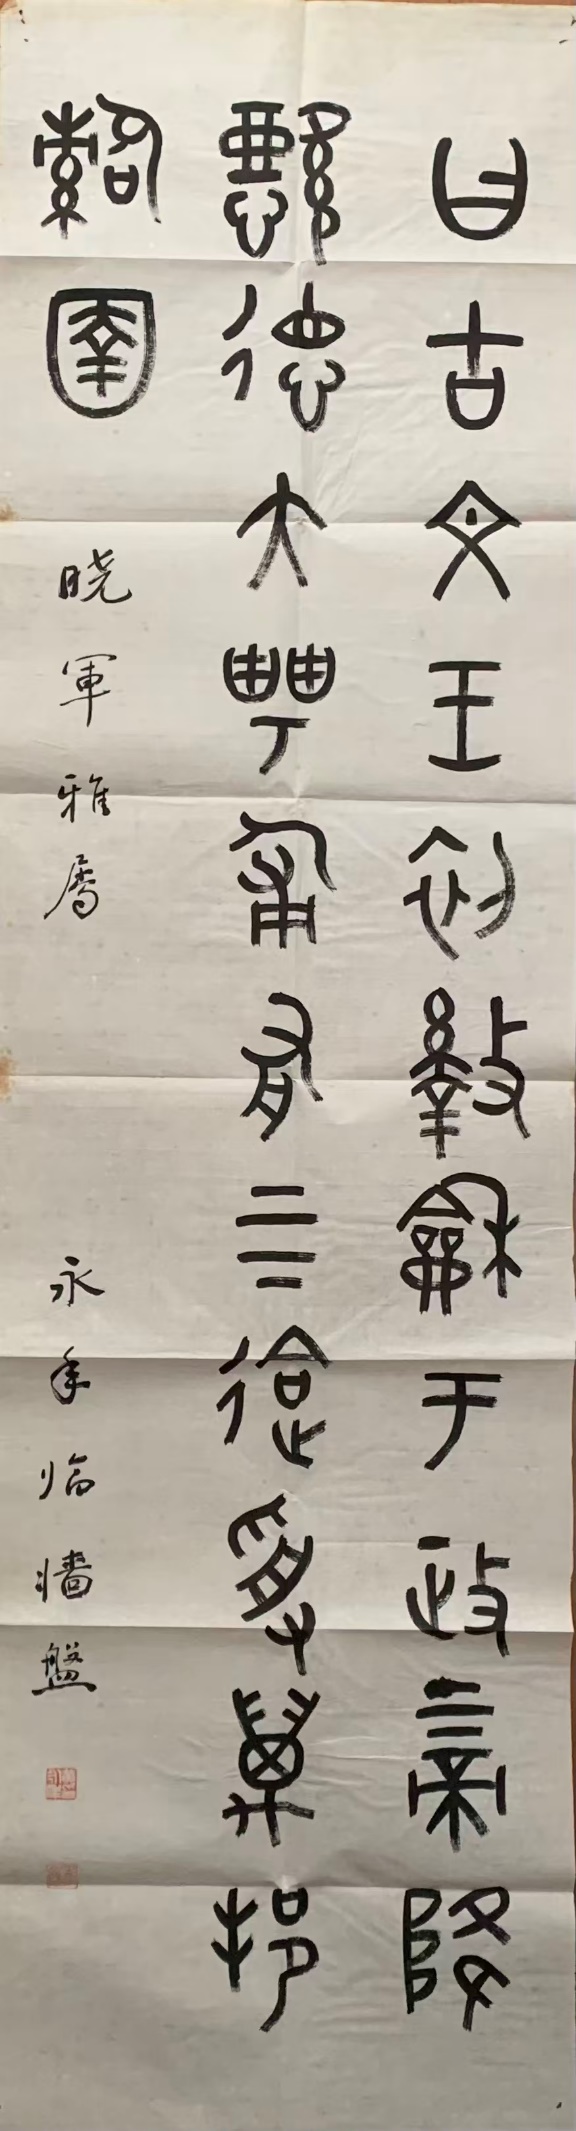 曰古文王初盭龢于政上帝降
懿德大甹匍有上下迨受萬邦
圉
晓軍雅属
永年临牆盤